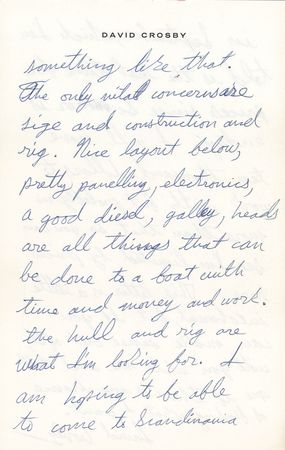 DAVID CROSBY
something like that.
The only vital concerns are
size and construction and
rig. Nice layout below,
pretty panelling, electronics,
a good diesel, galley, heads
are all things that can
be done to a boat with
time and money and work.
the hull and rig are
what I'm looking for. I
am hoping to be able
to come to Scandinavia